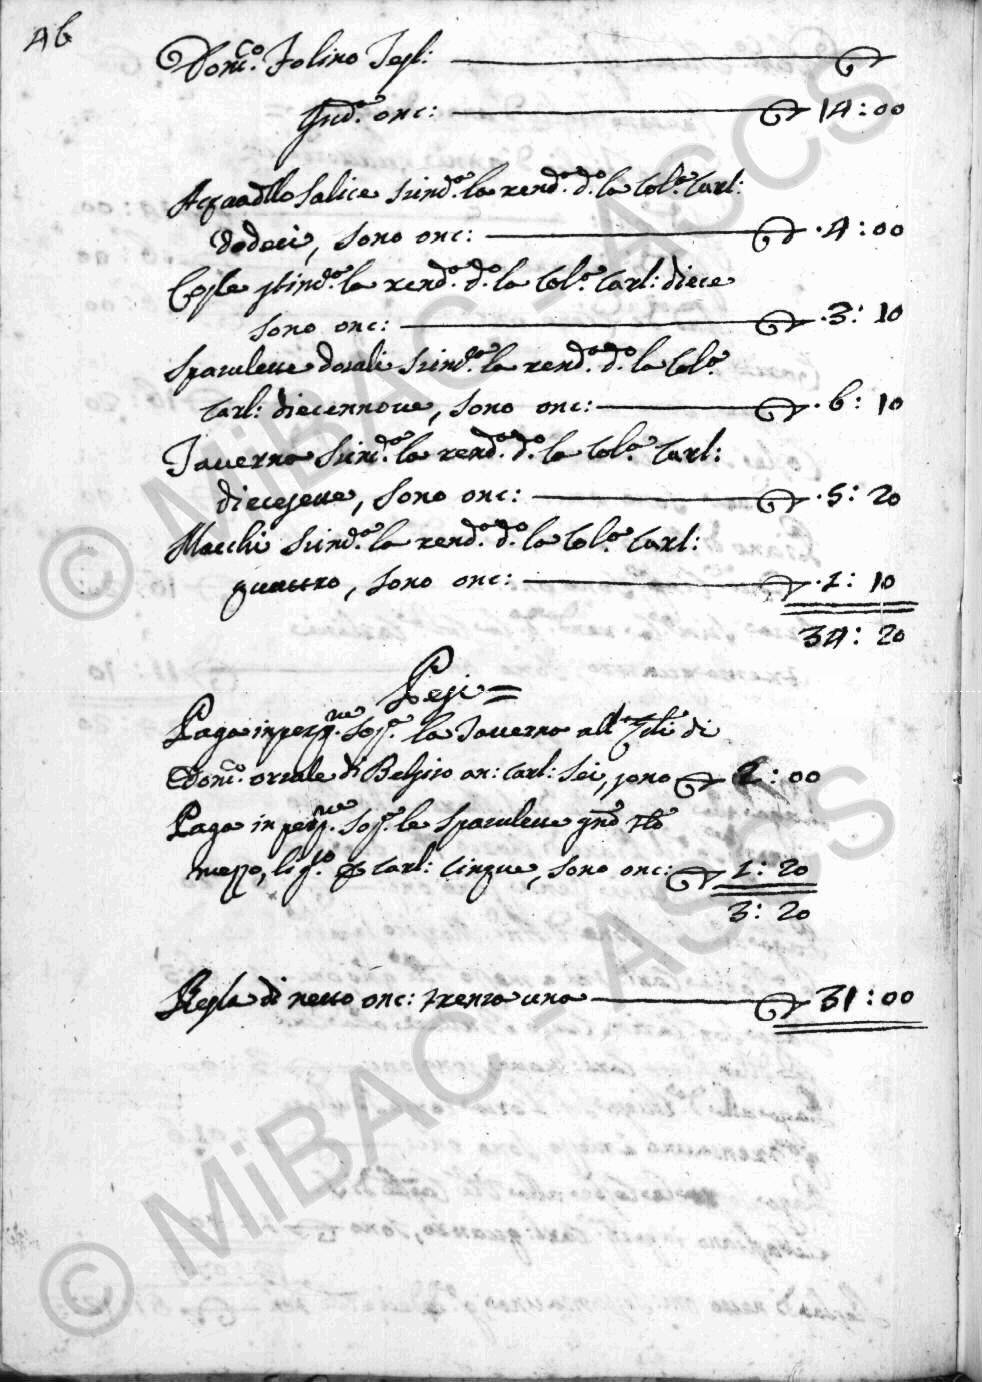 46
Dom.co Folino Test:
Ind.a onc: 14:00
Acqua dello Salice stim.o la rend.a d.o la Col.a Carl:
dodeci, sono onc: 4:00
Coste stim.o la rend.a d.a la Col.a Carl: diece
sono onc: 3:10
Sparulette stim.o la rend.a d.o la Col.a
Carl: diecennove, sono onc: 6:10
Taverna stim.o la rend.a d.o la Col.a Carl:
diecesette, sono onc: 5:20
Macchi stim.o la rend.a d.o la Col.a Carl:
quattro, sono onc: 1:10
34:20
Pesi =
Paga in perp.ue sop.a la Taverna all di
Dom.co di Belsito an: Carl: Sei, sono 2:00
Paga in perp.ue sop.a le Sparulette
mezzo, Carl: Cinque, sono onc: 1:20
3:20
Resta di netto onc: trenta una 31:00
© MiBAC - ASCS
© MiBAC - ASCS